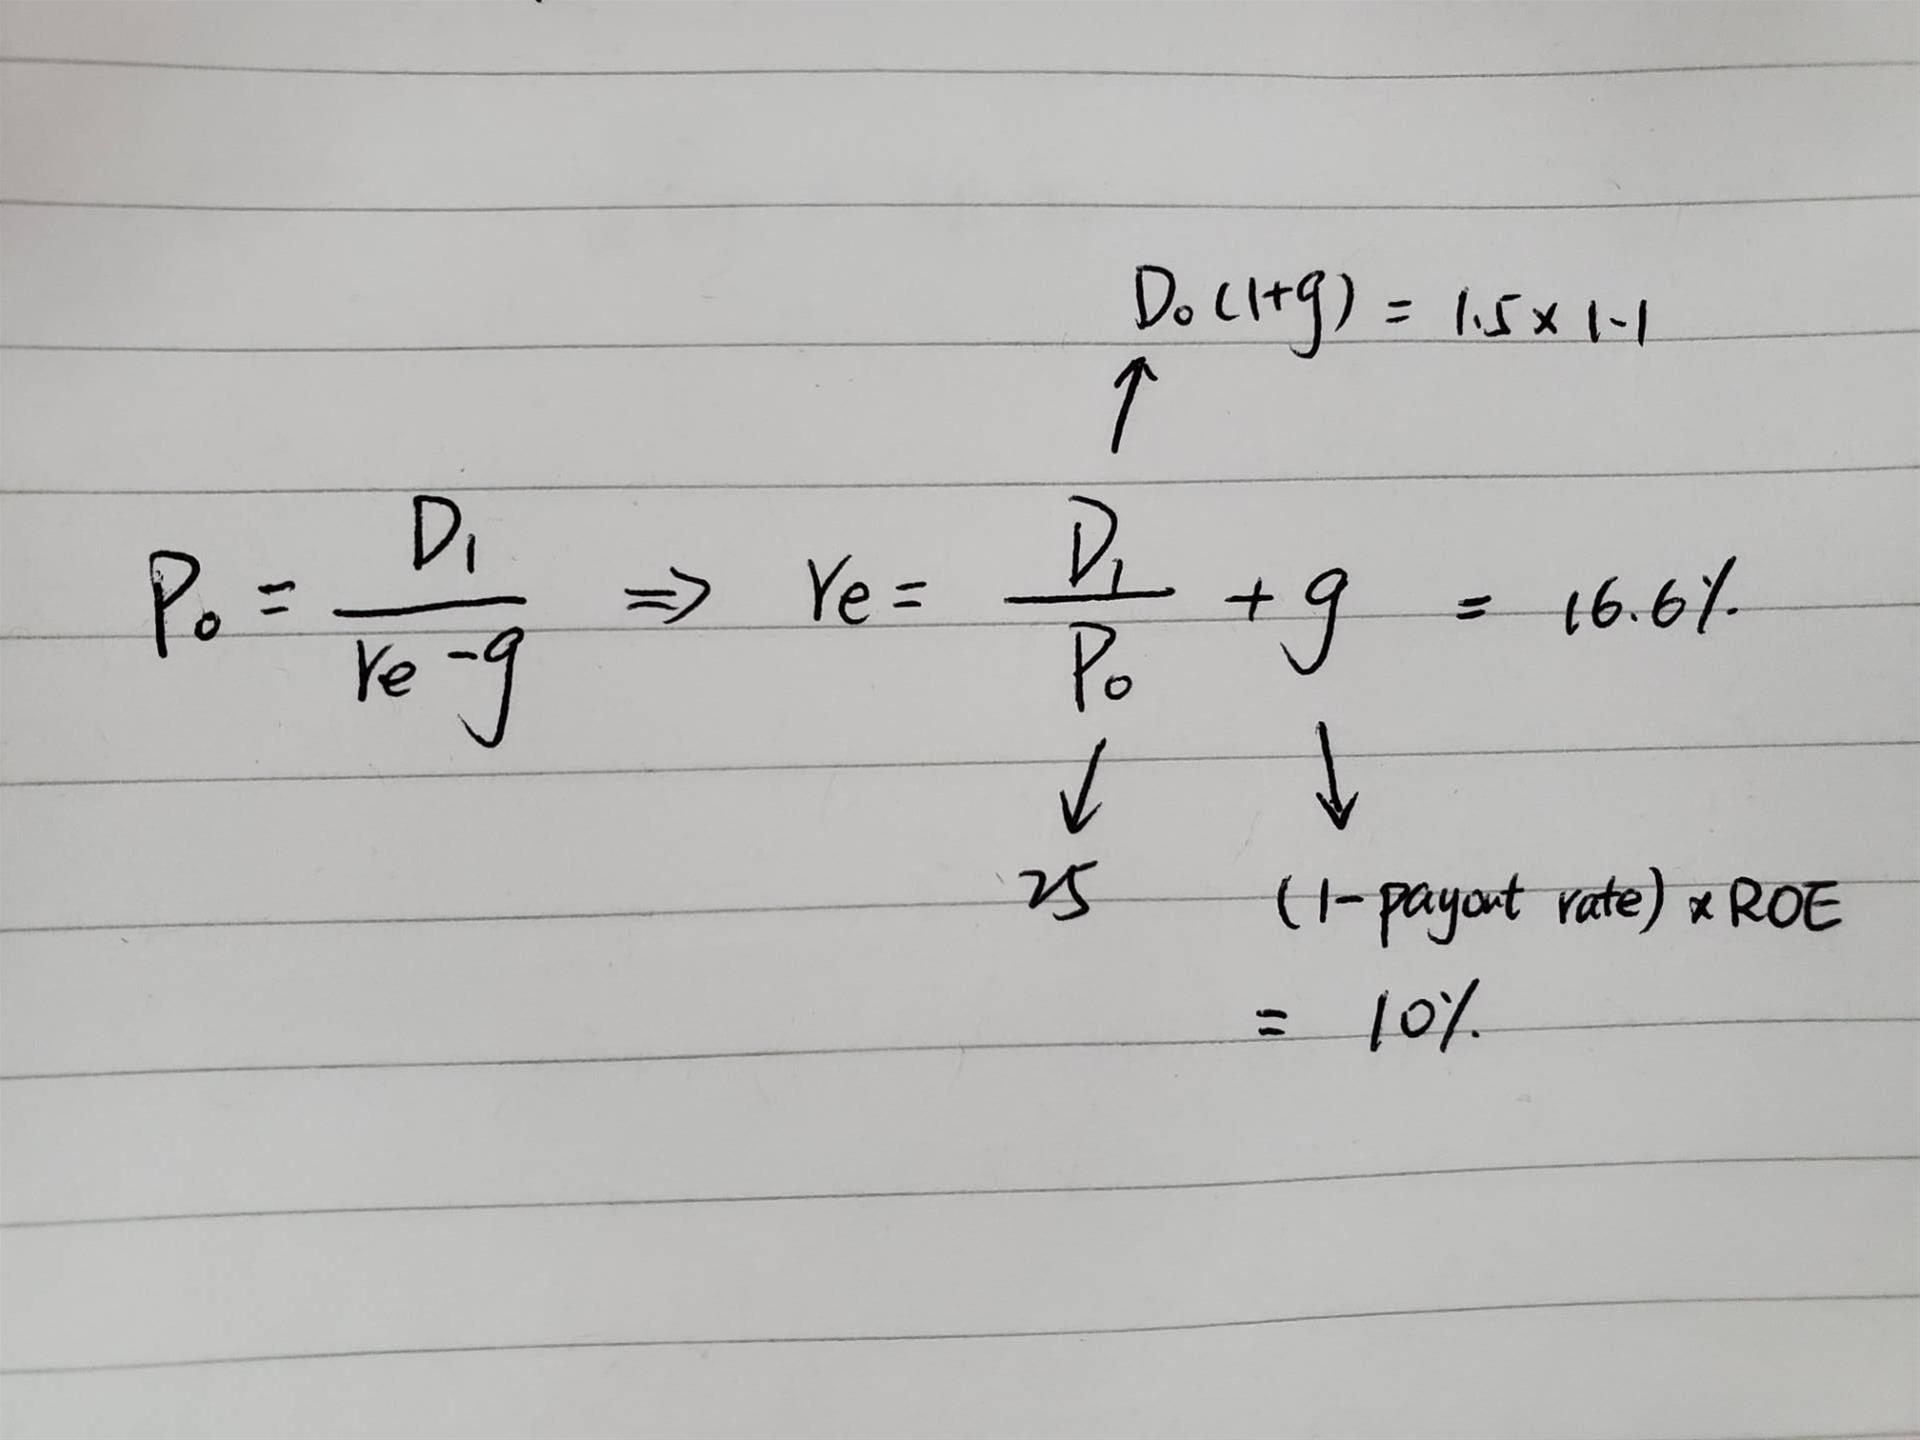 D₀(1+g) = 1.5 × 1.1
P₀ = D₁ / (re - g) ⇒ re = D₁ / P₀ + g = 16.6%
25
(1 - payout rate) × ROE
= 10%